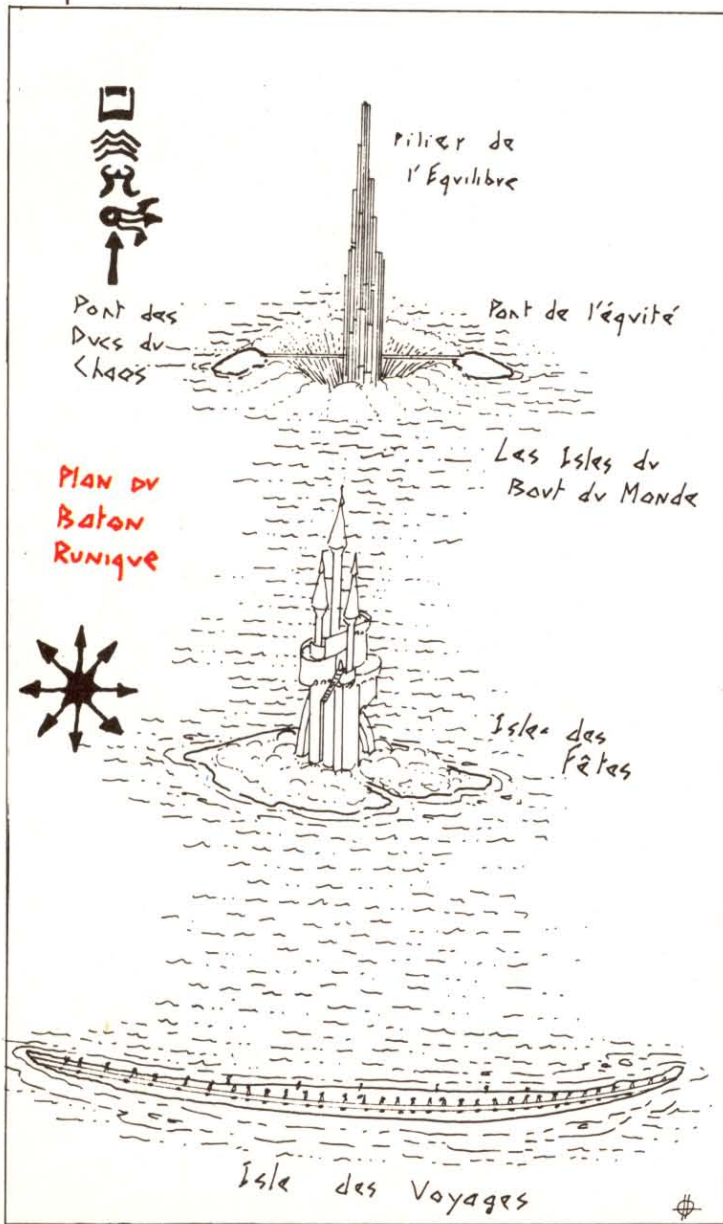 Pilier de
l'Equilibre
Pont des
Ducs du
Chaos
Pont de l'équité
Les Isles du
Bout du Monde
Plan du
Baton
Runique
Isle des
Fêtes
Isle des Voyages